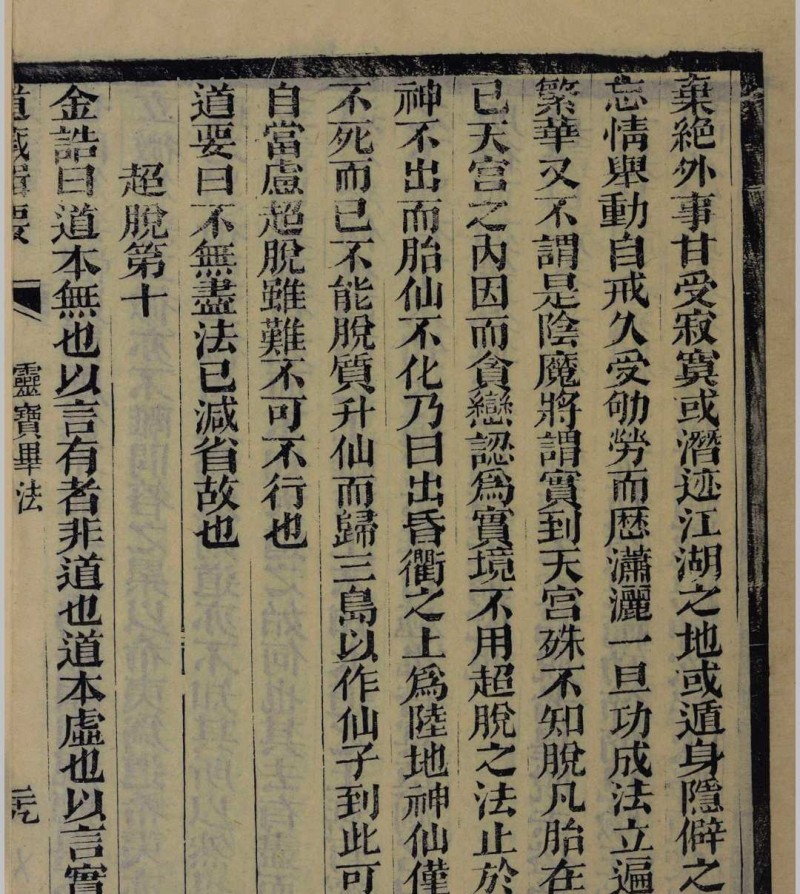 棄絶外事甘受寂寞或潛迹江湖之地或遁身隱僻之
忘情舉動自戒久受劬勞而歷瀟灑一旦功成法立遍
繁華又不謂是陰魔將謂實到天宮殊不知脫凡胎在
已天宮之內因而貪戀認爲實境不用超脫之法止於
神不出而胎仙不化乃曰出昏衢之上爲陸地神仙僅
不死而已不能脫質升仙而歸三島以作仙子到此可
自當慮超脫雖難不可不行也
道要曰不無盡法已減省故也
超脫第十
金誥曰道本無也以言有者非道也道本虛也以言實
道藏輯要
靈寶畢法